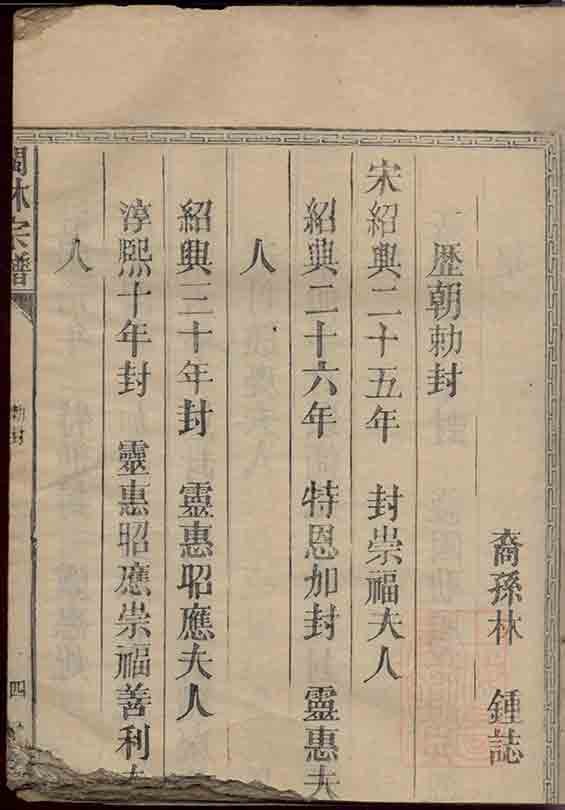 裔孫林 鍾誌
歷朝勅封
宋紹興二十五年 封崇福夫人
紹興二十六年 特恩加封 靈惠夫
人
紹興三十年封 靈惠昭應夫人
淳熙十年封 靈惠昭應崇福善利夫
人
林宗譜
勅封
四